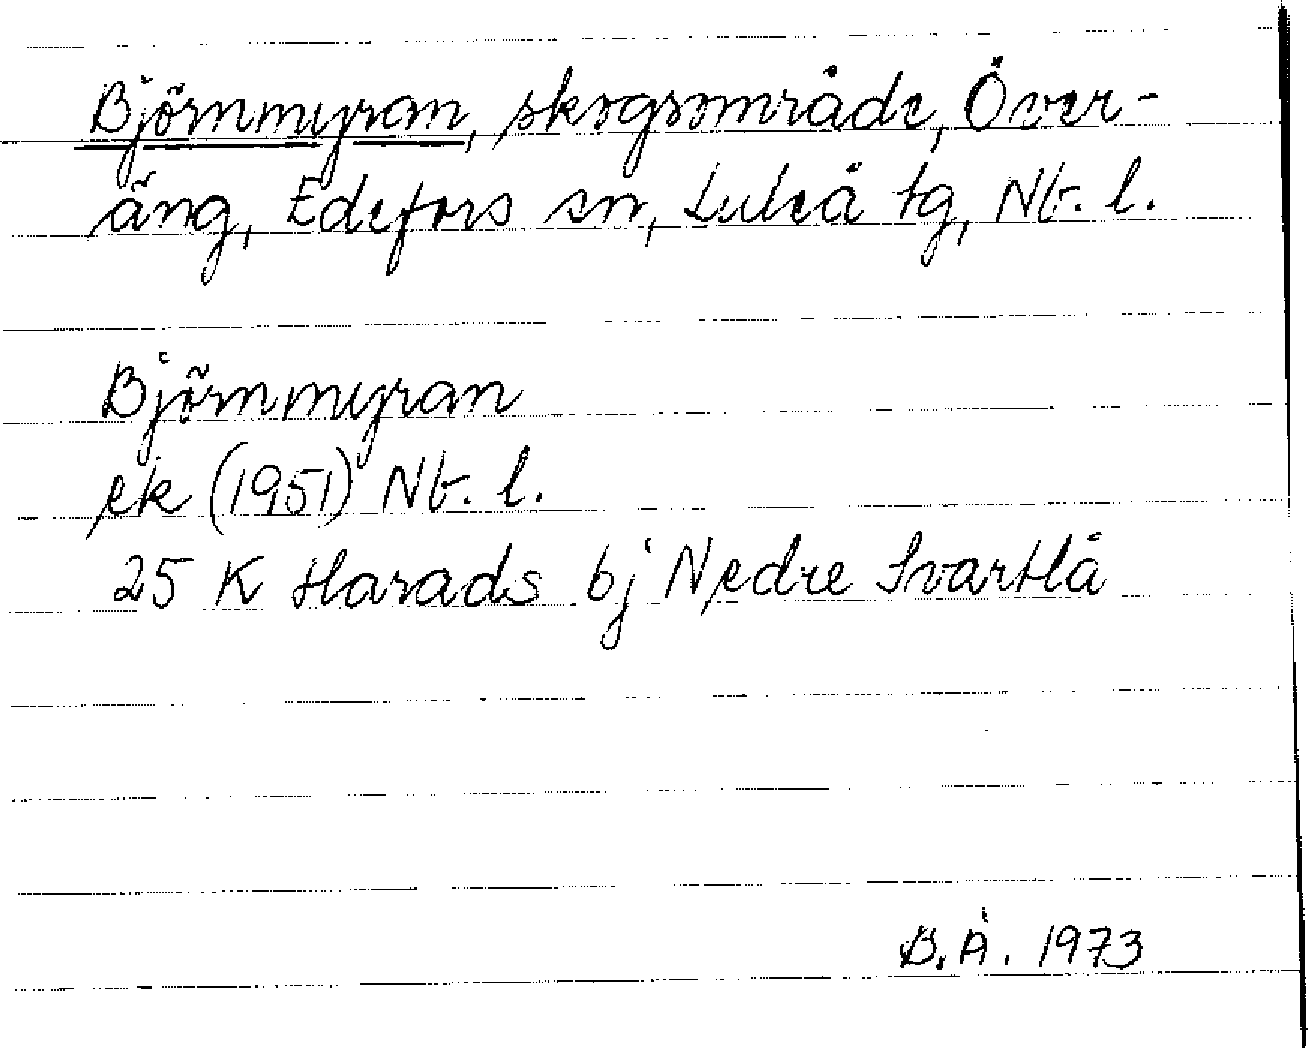 Björnmyran, skogsområde, Över-
äng, Edefors sn, Luleå tg, Nb. l.
Björnmyran
ek (1951) Nb. l.
25 K Harads bj Nedre Svartlå
B.Å. 1973